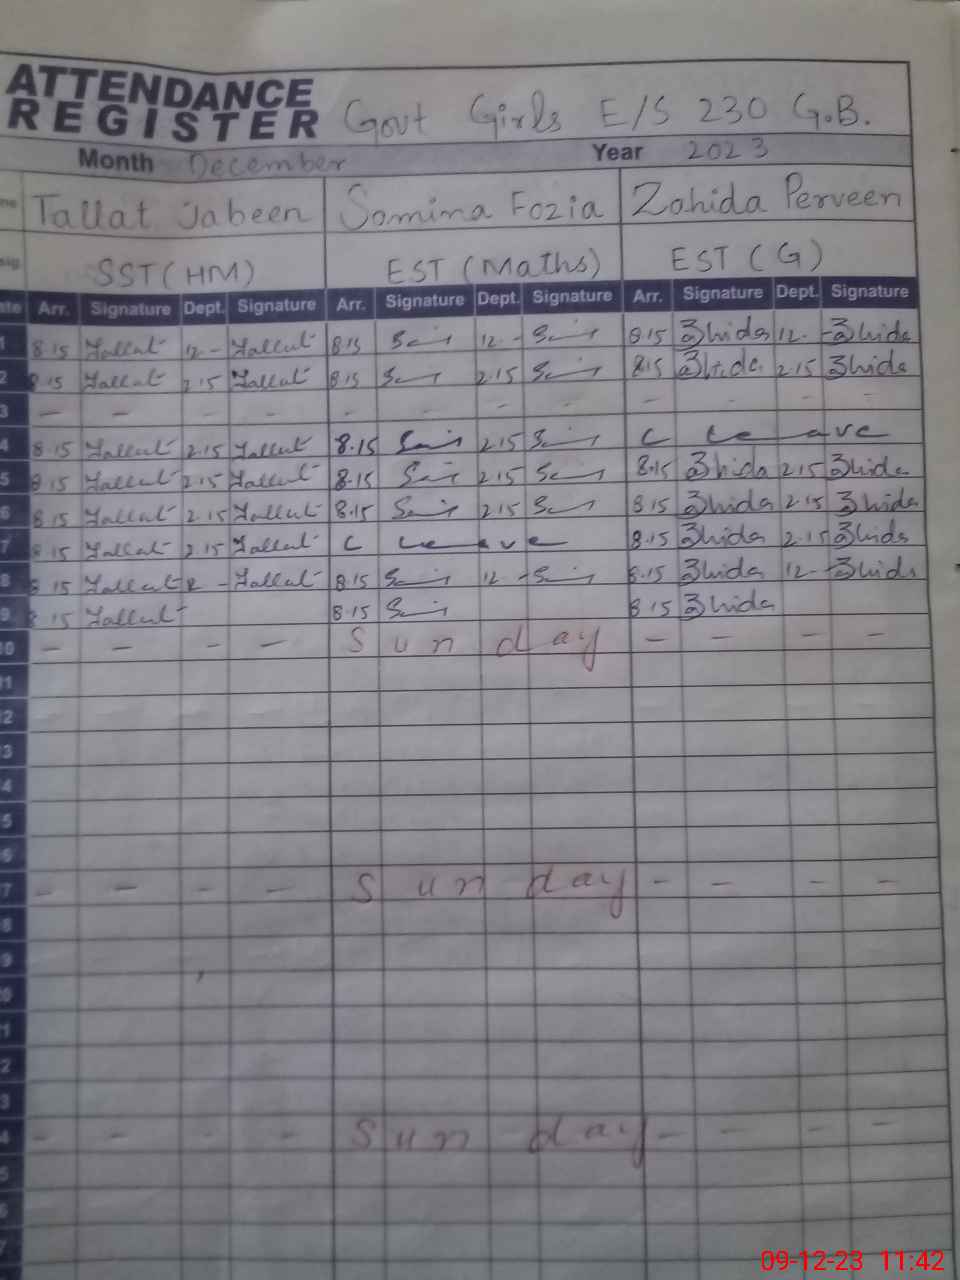 ATTENDANCE
REGISTER Govt Girls E/S 230 G.B.
Month December Year 2023
Tallat Jabeen Samina Fozia Zahida Perveen
SST (HM) EST (Maths) EST (G)
Arr. Signature Dept. Signature Arr. Signature Dept. Signature Arr. Signature Dept. Signature
1 8.15 Tallat 12- Tallat 8.15 12- 8.15 Zhida 12- Zhida
2 8.15 Tallat 2.15 Tallat 8.15 2.15 8.15 Zhida 2.15 Zhida
3 - - - - - - - - - - - -
4 8.15 Tallat 2.15 Tallat 8.15 2.15 C Leave
5 8.15 Tallat 2.15 Tallat 8.15 2.15 8.15 Zhida 2.15 Zhida
6 8.15 Tallat 2.15 Tallat 8.15 2.15 8.15 Zhida 2.15 Zhida
7 8.15 Tallat 2.15 Tallat C Leave 8.15 Zhida 2.15 Zhida
8 8.15 Tallat - Tallat 8.15 12- 8.15 Zhida 12- Zhida
9 8.15 Tallat 8.15 8.15 Zhida
10 - - - - Sunday - - - -
11
12
3
4
5
6
7 - - - - Sunday - - - -
8
9
20
1
2
3
4 - - - - Sunday - - - -
5
6
7
09-12-23 11:42